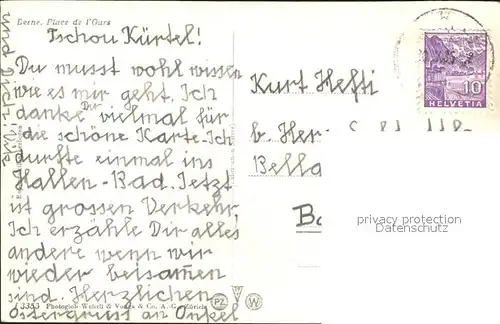 Berne. Place de l'Ours
Tschou Kürtel!
Du musst wohl wissen
wie es mir geht. Ich
danke Dir vielmal für
die schöne Karte. Ich
durfte einmal ins
Hallen-Bad. Jetzt
ist grossen Verkehr.
Ich erzähle Dir alles
andere wenn wir
wieder beisammen
sind. Herzlichen
Ostergruss an Onkel
und
Kurt Hefti
b. Her-
Bella
B
10
HELVETIA
privacy protection
Datenschutz
13353 Photoglob-Wehrli & Vouga & Co. A.G. Zürich
PZ W